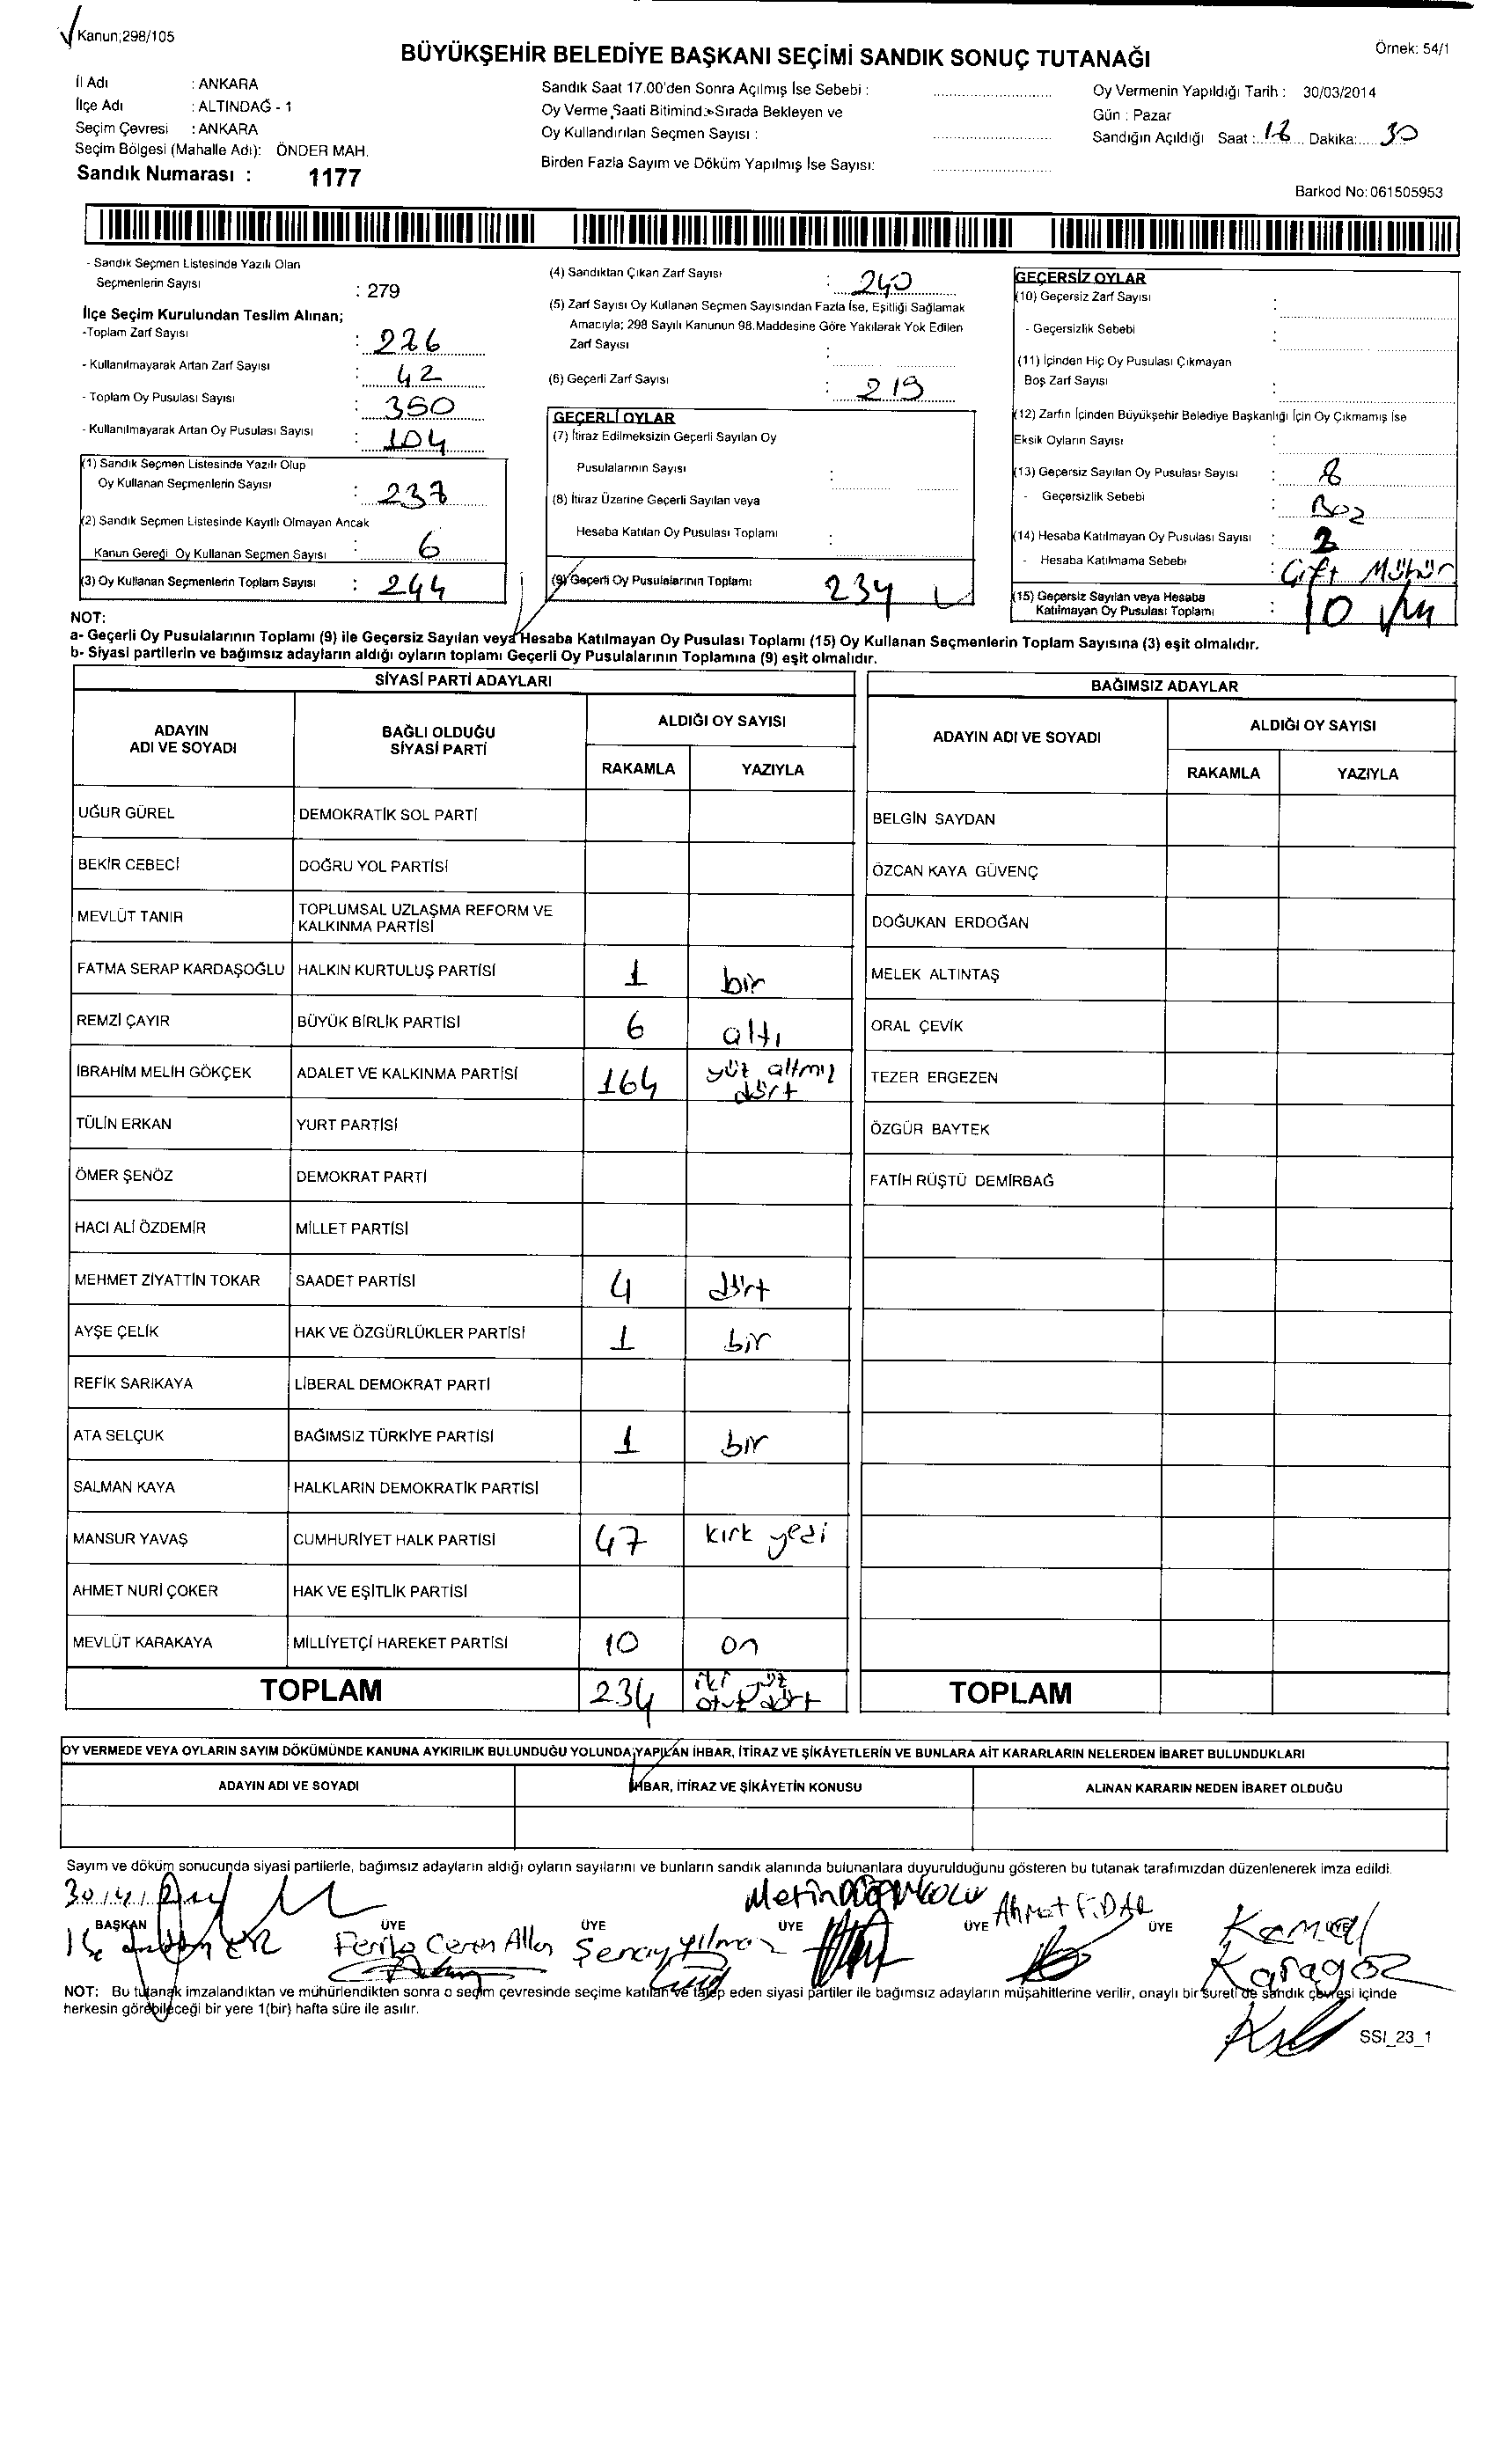 Kanun;298/105
Örnek: 54/1
BÜYÜKŞEHİR BELEDİYE BAŞKANI SEÇİMİ SANDIK SONUÇ TUTANAĞI
İl Adı : ANKARA
İlçe Adı : ALTINDAĞ - 1
Seçim Çevresi : ANKARA
Seçim Bölgesi (Mahalle Adı): ÖNDER MAH.
Sandık Numarası : 1177
Sandık Saat 17.00'den Sonra Açılmış İse Sebebi :
Oy Verme Saati Bitiminde Sırada Bekleyen ve
Oy Kullandırılan Seçmen Sayısı :
Birden Fazla Sayım ve Döküm Yapılmış İse Sayısı:
Oy Vermenin Yapıldığı Tarih : 30/03/2014
Gün : Pazar
Sandığın Açıldığı Saat : Dakika: 30
Barkod No: 061505953
- Sandık Seçmen Listesinde Yazılı Olan
Seçmenlerin Sayısı : 279
İlçe Seçim Kurulundan Teslim Alınan;
-Toplam Zarf Sayısı : 226
- Kullanılmayarak Artan Zarf Sayısı : 42
- Toplam Oy Pusulası Sayısı : 350
- Kullanılmayarak Artan Oy Pusulası Sayısı : 104
(1) Sandık Seçmen Listesinde Yazılı Olup
Oy Kullanan Seçmenlerin Sayısı :
(2) Sandık Seçmen Listesinde Kayıtlı Olmayan Ancak
Kanun Gereği Oy Kullanan Seçmen Sayısı : 6
(3) Oy Kullanan Seçmenlerin Toplam Sayısı : 244
(4) Sandıktan Çıkan Zarf Sayısı : 240
(5) Zarf Sayısı Oy Kullanan Seçmen Sayısından Fazla İse, Eşitliği Sağlamak
Amacıyla; 298 Sayılı Kanunun 98.Maddesine Göre Yakılarak Yok Edilen
Zarf Sayısı :
(6) Geçerli Zarf Sayısı : 219
GEÇERLİ OYLAR
(7) İtiraz Edilmeksizin Geçerli Sayılan Oy
Pusulalarının Sayısı :
(8) İtiraz Üzerine Geçerli Sayılan veya
Hesaba Katılan Oy Pusulası Toplamı :
(9) Geçerli Oy Pusulalarının Toplamı 234
GEÇERSİZ OYLAR
(10) Geçersiz Zarf Sayısı :
- Geçersizlik Sebebi :
(11) İçinden Hiç Oy Pusulası Çıkmayan
Boş Zarf Sayısı :
(12) Zarfın İçinden Büyükşehir Belediye Başkanlığı İçin Oy Çıkmamış İse
Eksik Oyların Sayısı :
(13) Geçersiz Sayılan Oy Pusulası Sayısı : 8
- Geçersizlik Sebebi :
(14) Hesaba Katılmayan Oy Pusulası Sayısı : 2
- Hesaba Katılmama Sebebi : Çift Mühür
(15) Geçersiz Sayılan veya Hesaba
Katılmayan Oy Pusulası Toplamı : 10
NOT:
a- Geçerli Oy Pusulalarının Toplamı (9) ile Geçersiz Sayılan veya Hesaba Katılmayan Oy Pusulası Toplamı (15) Oy Kullanan Seçmenlerin Toplam Sayısına (3) eşit olmalıdır.
b- Siyasi partilerin ve bağımsız adayların aldığı oyların toplamı Geçerli Oy Pusulalarının Toplamına (9) eşit olmalıdır.
SİYASİ PARTİ ADAYLARI
ADAYIN ADI VE SOYADI BAĞLI OLDUĞU SİYASİ PARTİ ALDIĞI OY SAYISI
RAKAMLA YAZIYLA
UĞUR GÜREL DEMOKRATİK SOL PARTİ
BEKİR CEBECİ DOĞRU YOL PARTİSİ
MEVLÜT TANIR TOPLUMSAL UZLAŞMA REFORM VE KALKINMA PARTİSİ
FATMA SERAP KARDAŞOĞLU HALKIN KURTULUŞ PARTİSİ 1 bir
REMZİ ÇAYIR BÜYÜK BİRLİK PARTİSİ 6 altı
İBRAHİM MELİH GÖKÇEK ADALET VE KALKINMA PARTİSİ 164 yüz altmış dört
TÜLİN ERKAN YURT PARTİSİ
ÖMER ŞENÖZ DEMOKRAT PARTİ
HACI ALİ ÖZDEMİR MİLLET PARTİSİ
MEHMET ZİYATTİN TOKAR SAADET PARTİSİ 4 dört
AYŞE ÇELİK HAK VE ÖZGÜRLÜKLER PARTİSİ 1 bir
REFİK SARIKAYA LİBERAL DEMOKRAT PARTİ
ATA SELÇUK BAĞIMSIZ TÜRKİYE PARTİSİ 1 bır
SALMAN KAYA HALKLARIN DEMOKRATİK PARTİSİ
MANSUR YAVAŞ CUMHURİYET HALK PARTİSİ 47 kırk yedi
AHMET NURİ ÇOKER HAK VE EŞİTLİK PARTİSİ
MEVLÜT KARAKAYA MİLLİYETÇİ HAREKET PARTİSİ 10 on
TOPLAM 234 iki yüz otuz dört
BAĞIMSIZ ADAYLAR
ADAYIN ADI VE SOYADI ALDIĞI OY SAYISI
RAKAMLA YAZIYLA
BELGİN SAYDAN
ÖZCAN KAYA GÜVENÇ
DOĞUKAN ERDOĞAN
MELEK ALTINTAŞ
ORAL ÇEVİK
TEZER ERGEZEN
ÖZGÜR BAYTEK
FATİH RÜŞTÜ DEMİRBAĞ
TOPLAM
OY VERMEDE VEYA OYLARIN SAYIM DÖKÜMÜNDE KANUNA AYKIRILIK BULUNDUĞU YOLUNDA YAPILAN İHBAR, İTİRAZ VE ŞİKÂYETLERİN VE BUNLARA AİT KARARLARIN NELERDEN İBARET BULUNDUKLARI
ADAYIN ADI VE SOYADI İHBAR, İTİRAZ VE ŞİKÂYETİN KONUSU ALINAN KARARIN NEDEN İBARET OLDUĞU
Sayım ve döküm sonucunda siyasi partilerle, bağımsız adayların aldığı oyların sayılarını ve bunların sandık alanında bulunanlara duyurulduğunu gösteren bu tutanak tarafımızdan düzenlenerek imza edildi.
Metin Ahmet FiDAL
BAŞKAN ÜYE ÜYE ÜYE ÜYE ÜYE
Ceren Şenay Yılmaz Kemal
Karagöz
NOT: Bu tutanak imzalandıktan ve mühürlendikten sonra o seçim çevresinde seçime katılan ve talep eden siyasi partiler ile bağımsız adayların müşahitlerine verilir, onaylı bir sureti de sandık çevresi içinde
herkesin görebileceği bir yere 1(bir) hafta süre ile asılır.
SSI_23_1